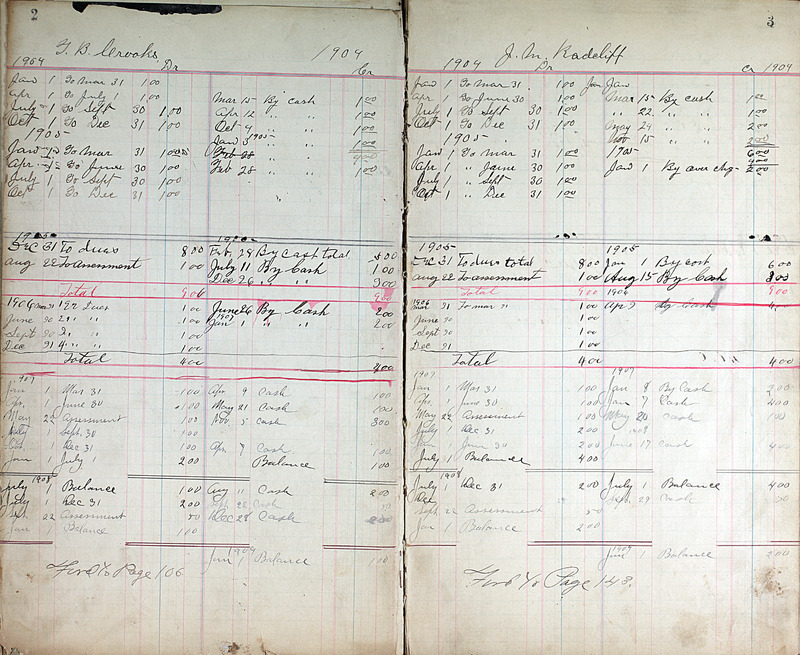 2
G. B. Crooks 1904
1904 Dr Cr
Jan 1 To Mar 31 1 00
Apr 1 To July 1 1 00 Mar 15 By cash 1 00
July 1 To Sept 30 1 00 Apr 12 " " 1 00
Oct 1 To Dec 31 1 00 Oct 4 " " 1 00
1905 1905
Jan 1 To Mar 31 1 00 Jan 3 " 1 00
Apr 1 To June 30 1 00 Feb 28 4 00
July 1 To Sept 30 1 00 Feb 28 " 1 00
Oct 1 To Dec 31 1 00
1905 1905
Dec 31 To dues 8 00 Feb. 28 By Cash total 5 00
Aug 22 To assessment 1 00 July 11 By Cash 1 00
Dec 26 " " 3 00
Total 9 00 9 00
1906 Mar 31 Dues 1 00 June 26 By Cash 2 00
June 30 " 1 00 1907 Jan 1 " " 2 00
Sept 30 " 1 00
Dec 31 " " 1 00
Total 4 00 4 00
1907
Jan 1 Mar 31 1 00 Apr 9 Cash 1 00
Apr. 1 June 30 1 00 May 21 Cash 1 00
May 22 Assessment 1 00 Nov. 5 Cash 3 00
July 1 Sept. 30 1 00
Oct 1 Dec 31 1 00 Apr 7 Cash 1 00
Jan 1 July 1 2 00 Balance 1 00
1908
July 1 Balance 1 00 Aug 11 Cash 2 00
July 1 Dec 31 2 00 Sept. 22 Cash 50
Sept. 22 Assessment 50 Dec 28 Cash 2 00
Jan 1 Balance 1 00
1909
Jan 1 Balance 1 00
Ford To Page 106.
3
1904 J. M. Radcliff
Dr Cr 1904
Jan 1 To Mar 31 1 00 Jan Jan
Apr 1 To June 30 1 00 Mar 15 By cash 1 00
July 1 To Sept 30 1 00 " 22 " " 1 00
Oct 1 To Dec 31 1 00 May 24 " " 2 00
1905 Nov 15 " 2 00
Jan 1 To Mar 31 1 00 1905 6 00
Apr 1 " June 30 1 00 4 00
July 1 " Sept 30 1 00 Jan 1 By over chg 2 00
Oct 1 " Dec 31 1 00
1905 1905
Dec 31 To dues total 8 00 Jan 1 By cost 6 00
Aug 22 To assessment 1 00 Aug 15 By Cash 3 00
Total 9 00 1906 9 00
1906 Mar 31 To mar " 1 00 Apr 3 by Cash 4
June 30 1 00
Sept 30 1 00
Dec 31 1 00
Total 4 00 4 00
1907 1907
Jan 1 Mar 31 1 00 Jan 8 By Cash 2 00
Apr. 1 June 30 1 00 Jan 7 Cash 4 00
May 22 Assessment 1 00 May 20 Cash 1 00
July 1 Dec 31 2 00
Jan 1 Jun 30 2 00 June 17 Cash 4 00
July 1 Balance 4 00
1908
July 1 Dec 31 2 00 July 1 Balance 4 00
Dec Sept. 29 Cash 50
Sept. 22 Assessment 50
Jan 1 Balance 2 00
1909
Jan 1 Balance 2 00
Ford To Page 143.